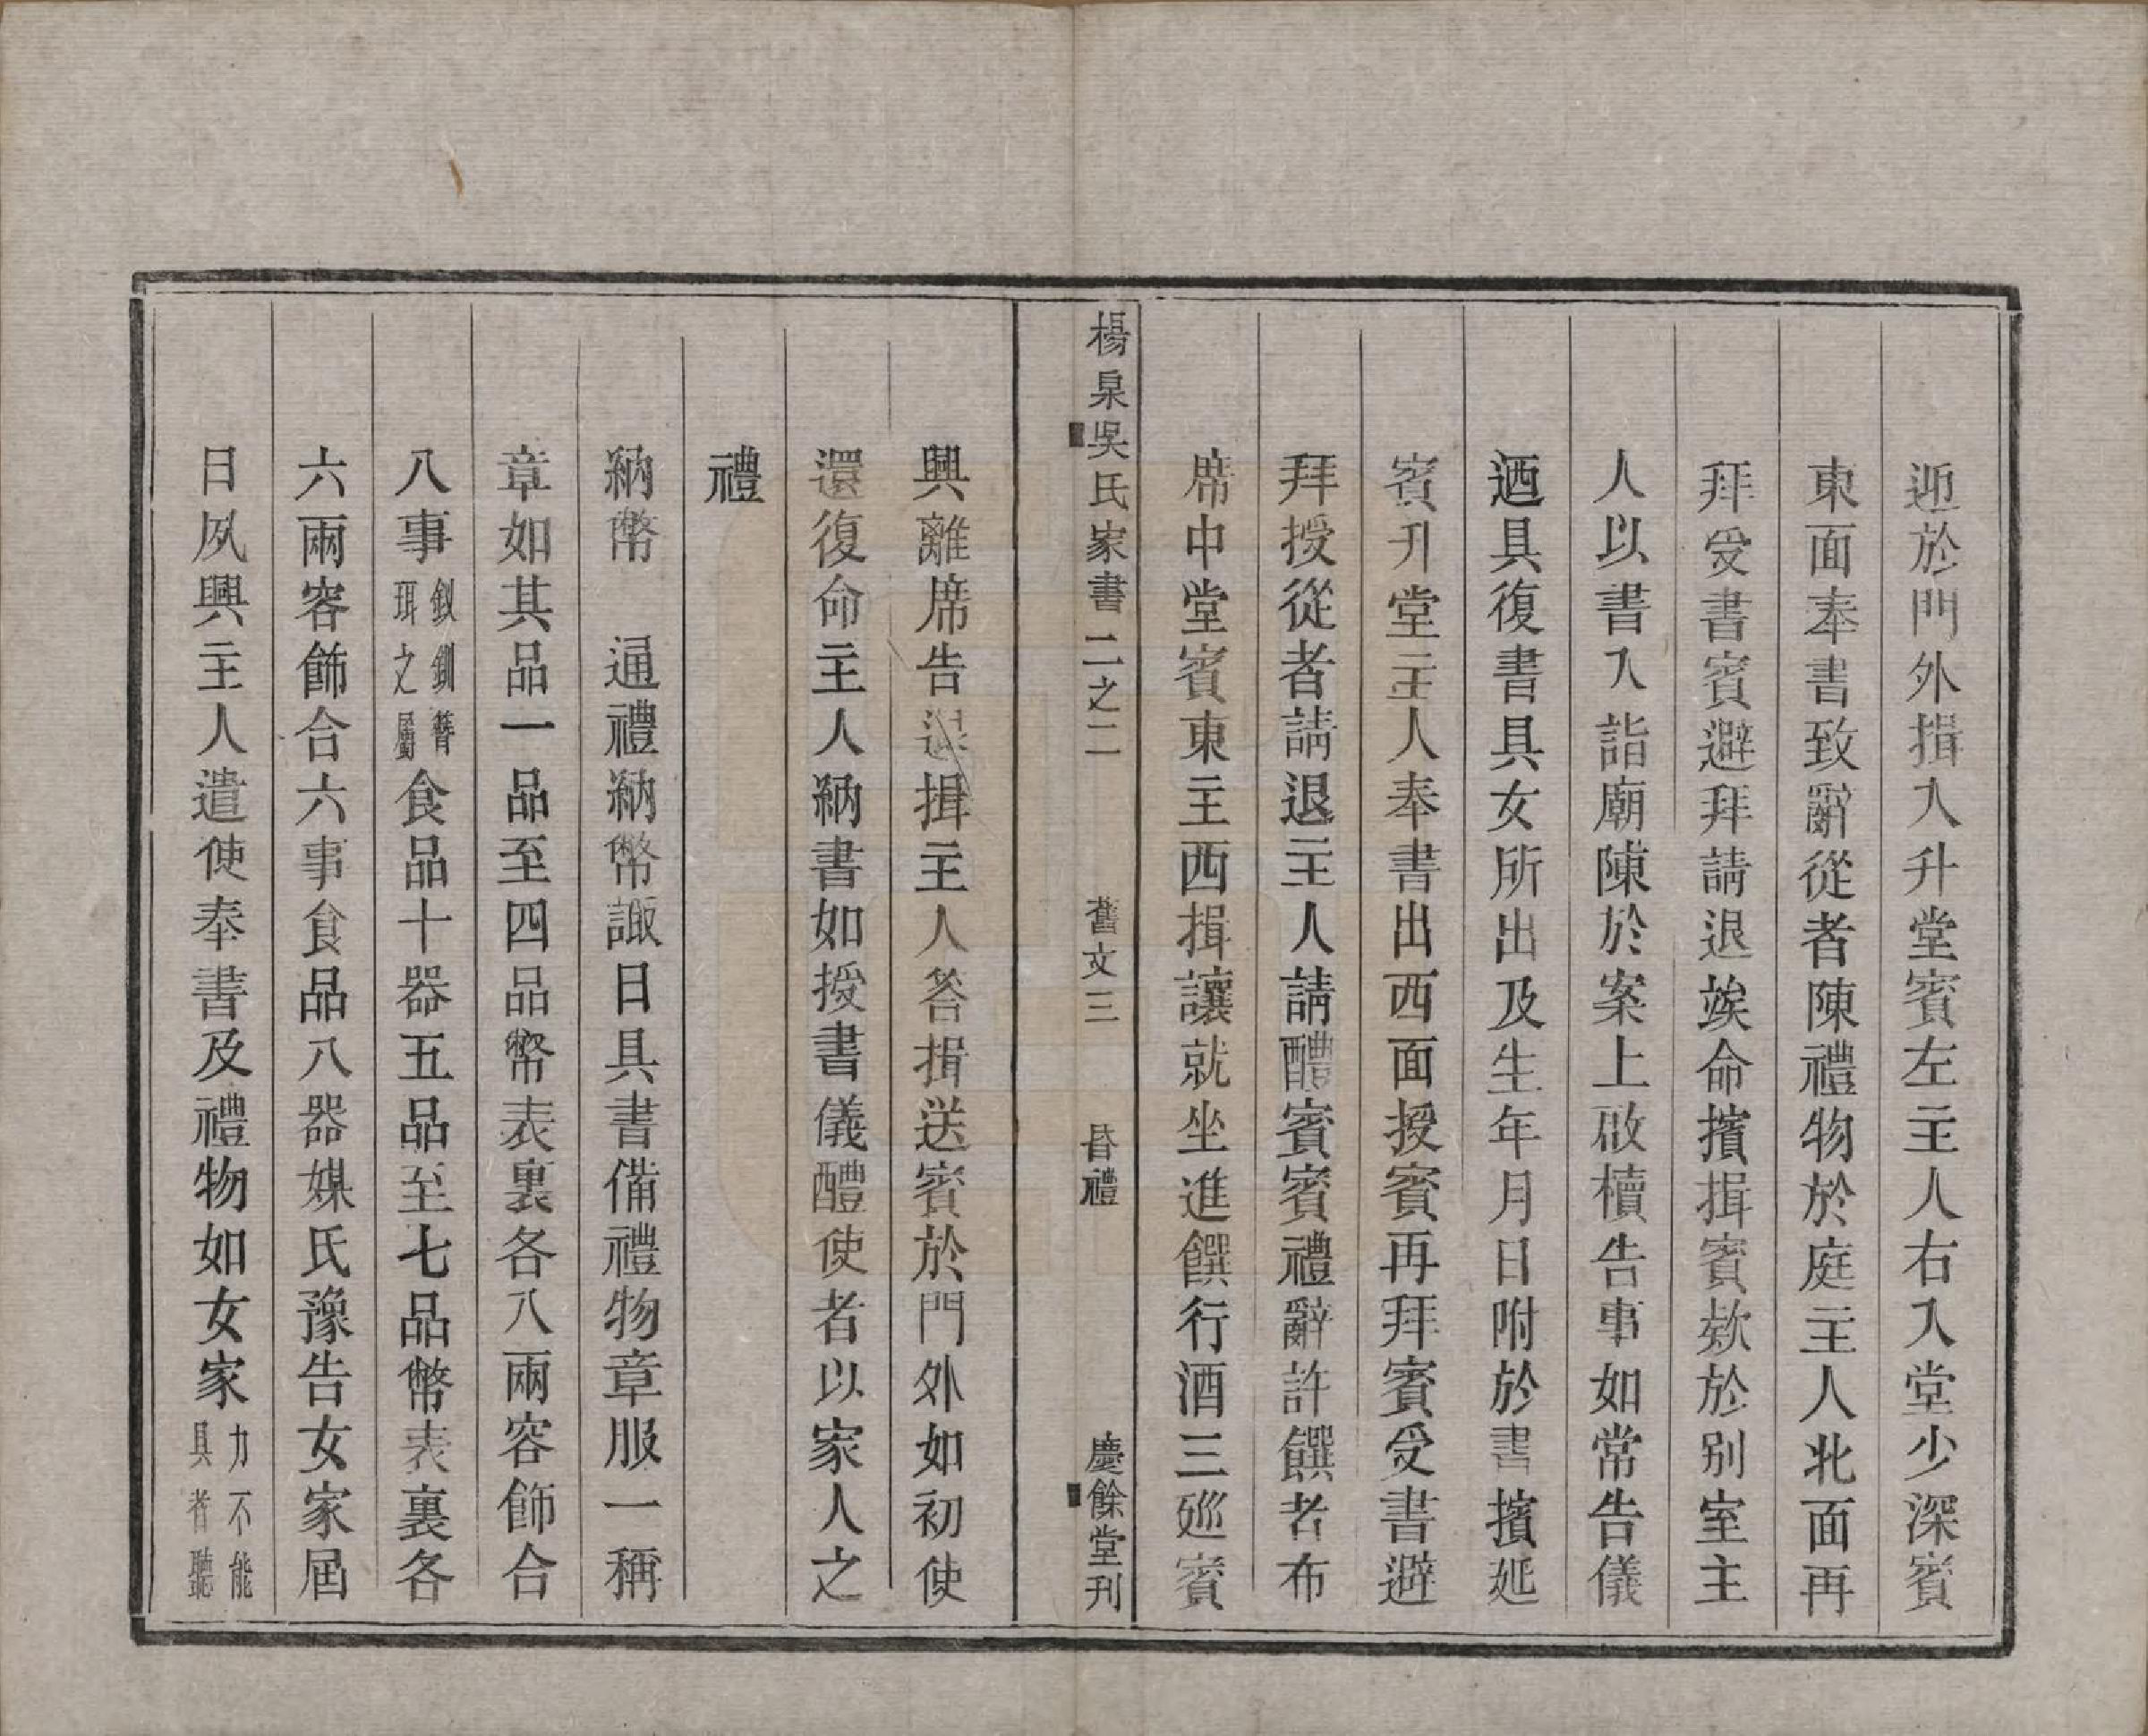 迎於門外揖入升堂賓左主人右入堂少深賓
東面奉書致辭從者陳禮物於庭主人北面再
拜受書賓避拜請退竢命擯揖賓欵於别室主
人以書入詣廟陳於案上啟櫝告事如常告儀
迺具復書具女所出及生年月日附於書擯延
賓升堂主人奉書出西面授賓再拜賓受書避
拜授從者請退主人請醴賓賓禮辭許饌者布
席中堂賓東主西揖讓就坐進饌行酒三廵賓
楊泉吳氏家書二之二 舊文三 昏禮 慶餘堂刊
興離席告退揖主人答揖送賓於門外如初使
還復命主人納書如授書儀醴使者以家人之
禮
納幣 通禮納幣諏日具書備禮物章服一稱
章如其品一品至四品幣表裏各八兩容飾合
八事釵釧簪珥之屬食品十器五品至七品幣表裏各
六兩容飾合六事食品八器媒氏豫告女家屆
日夙興主人遣使奉書及禮物如女家力不能具者聽